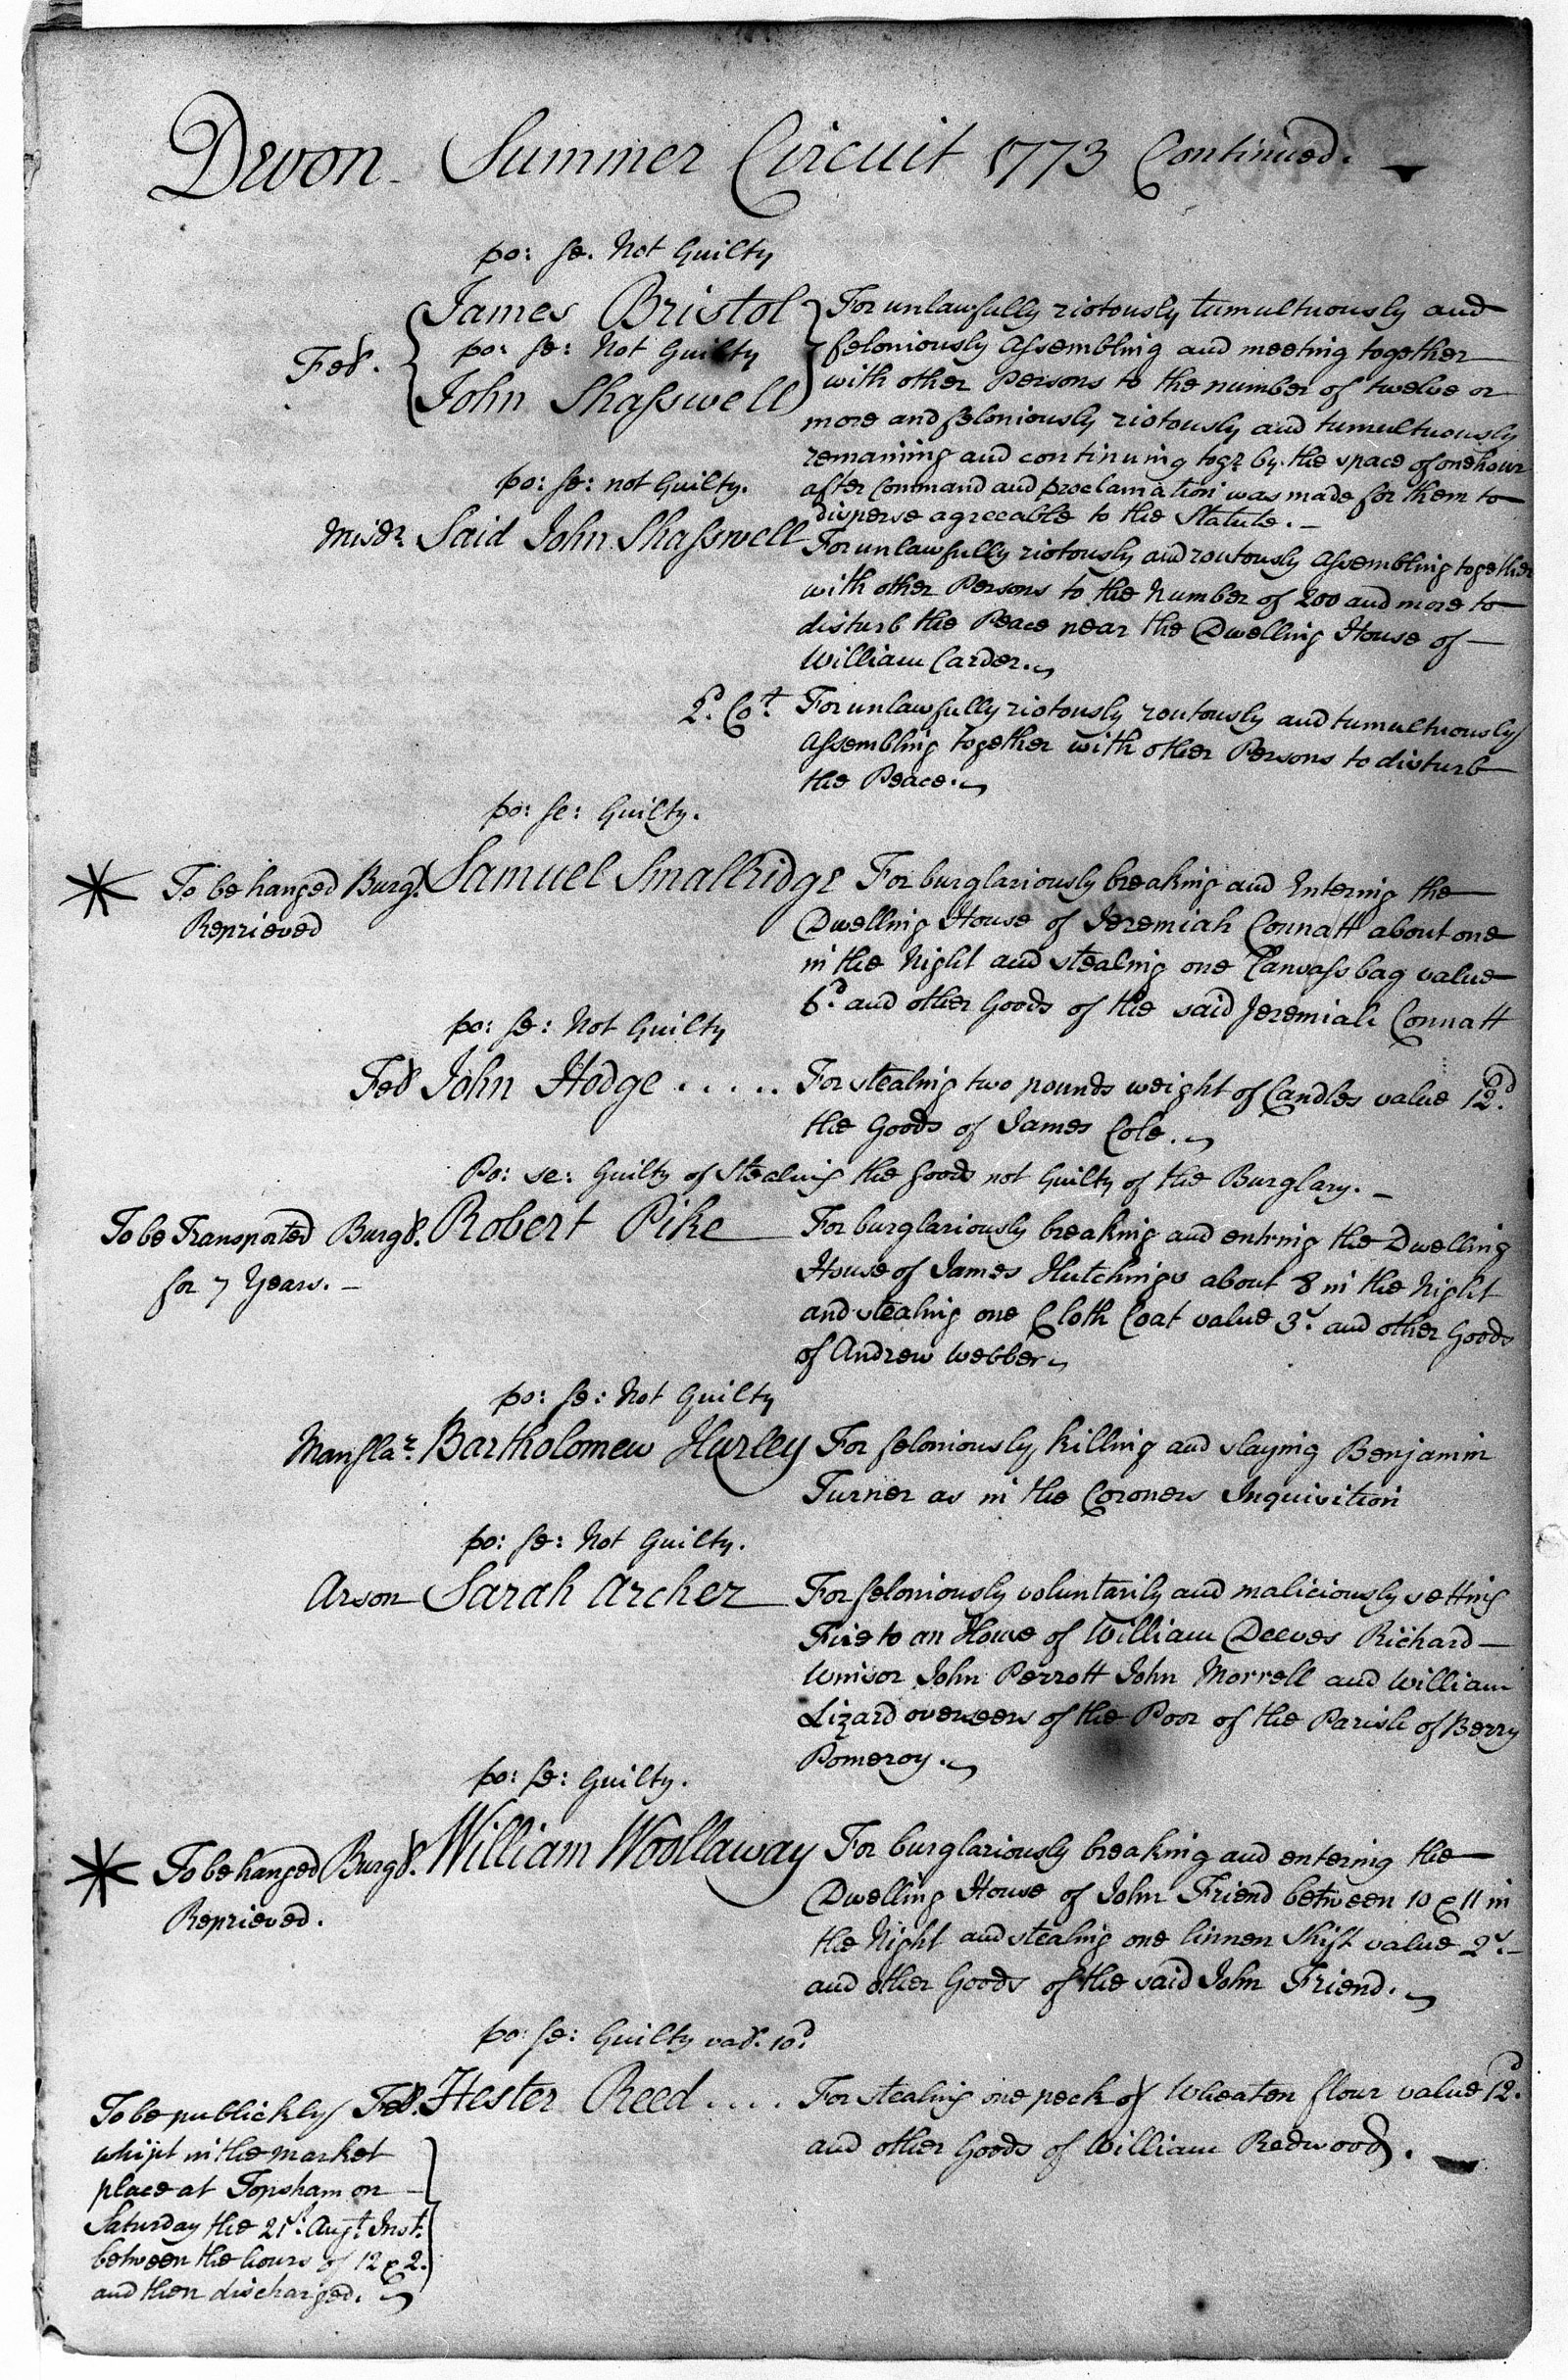 Devon Summer Circuit 1773 Continued.
po: se. Not Guilty
James Bristol
Fel.
po: se: Not Guilty
John Shasswell
For unlawfully riotously tumultuously and
feloniously Assembling and meeting together
with other Persons to the number of twelve or
more and feloniously riotously and tumultuously
remaining and continuing togr. by the space of one hour
after Command and proclamation was made for them to
disperse agreeable to the Statute. —
po: se: not Guilty.
Misdr. Said John Shasswell For unlawfully riotously and routously Assembling together
with other Persons to the Number of 200 and more to
disturb the Peace near the Dwelling House of
William Carder.
2d. Cot. For unlawfully riotously routously and tumultuously
Assembling together with other Persons to disturb
the Peace.
po: se: Guilty.
To be hanged Burgl. Samuel Smallridge For burglariously breaking and Entering the
Reprieved
Dwelling House of Jeremiah Connatt about one
in the Night and stealing one Canvass bag value
6d. and other Goods of the said Jeremiah Connatt
po: se: Not Guilty
Fel John Hodge . . . . . For stealing two pounds weight of Candles value 12d.
the Goods of James Cole.
Po: se: Guilty of Stealing the Goods not Guilty of the Burglary. —
To be Transported Burgl. Robert Pike For burglariously breaking and entring the Dwelling
for 7 Years. —
House of James Hutchings about 8 in the Night
and stealing one Cloth Coat value 3s. and other Goods
of Andrew Webber
po: se: Not Guilty
Manslar. Bartholomew Hurley For feloniously killing and slaying Benjamin
Turner as in the Coroners Inquisition
po: se: Not Guilty.
Arson Sarah Archer For feloniously voluntarily and maliciously setting
Fire to an House of William Deeves Richard
Winsor John Perrott John Morrell and William
Lizard overseers of the Poor of the Parish of Berry
Pomeroy.
po: se: Guilty.
To be hanged Burgl. William Woollaway For burglariously breaking and entering the
Reprieved.
Dwelling House of John Friend between 10 & 11 in
the Night and stealing one linnen Shift value 2s. —
and other Goods of the said John Friend.
po: se: Guilty val. 10d.
To be publickly Fel. Hester Reed . . . . For stealing one peck of Wheaten flour value 12d.
and other Goods of William Redwood.
whipt in the market
place at Topsham on
Saturday the 21st. Augt. Inst.
between the hours of 12 & 2.
and then discharged.